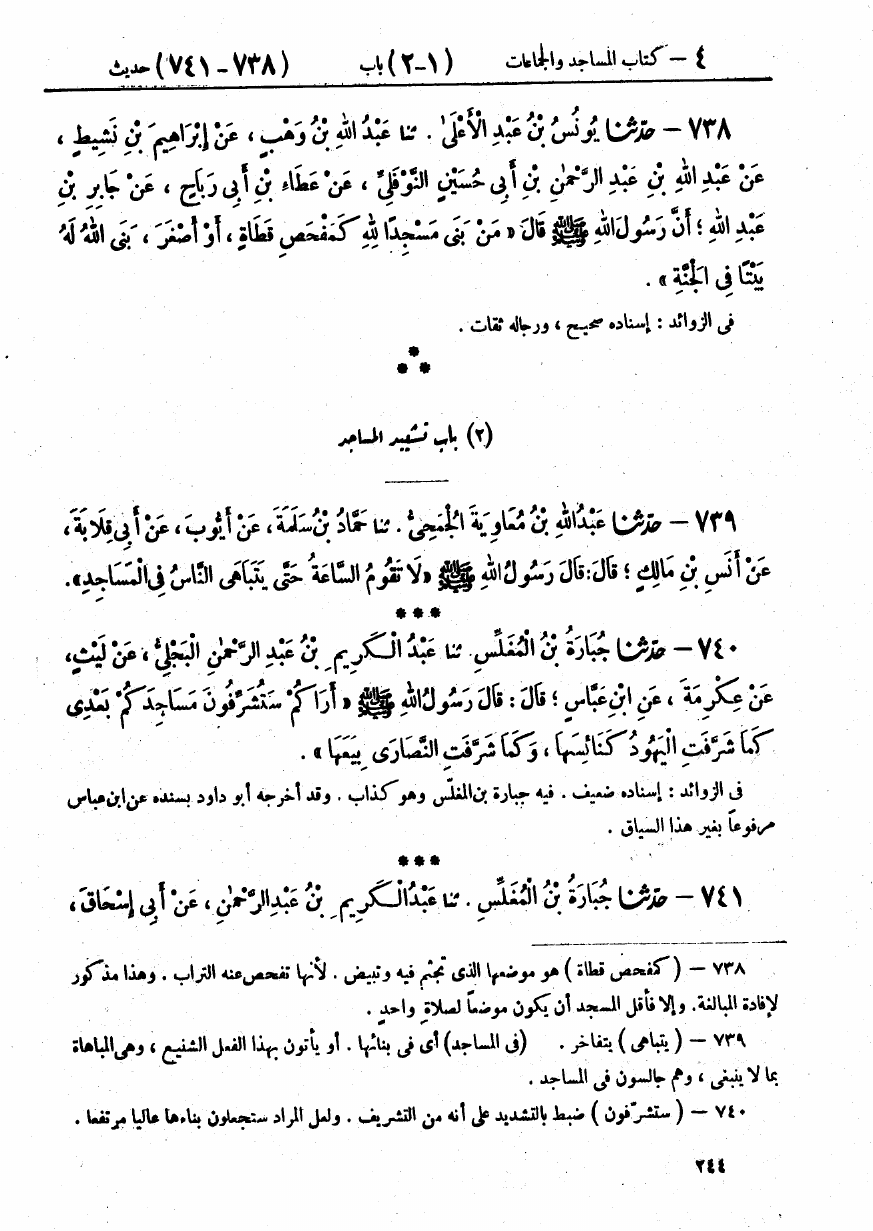 ٤ – كتاب المساجد والجماعات (١–٢) باب (٧٣٨–٧٤١) حديث
٧٣٨ – حدّثنا يُونُسُ بْنُ عَبْدِ الْأَعْلَىٰ . ثنا عَبْدُ اللهِ بْنُ وَهْبٍ ، عَنْ إِبْرَاهِيمَ بْنِ نَشِيطٍ ،
عَنْ عَبْدِ اللهِ بْنِ عَبْدِ الرَّحْمٰنِ بْنِ أَبِى حُسَيْنٍ النَّوْفَلِيِّ ، عَنْ عَطَاءِ بْنِ أَبِى رَبَاحٍ ، عَنْ جَابِرِ بْنِ
عَبْدِ اللهِ ؛ أَنَّ رَسُولَ اللهِ ﷺ قَالَ « مَنْ بَنَى مَسْجِدًا لِلهِ كَمَفْحَصِ قَطَاةٍ ، أَوْ أَصْغَرَ ، بَنَى اللهُ لَهُ
بَيْتًا فِى الْجَنَّةِ » .
فى الزوائد : إسناده صحيح ، ورجاله ثقات .
* * *
(٢) باب تشييد المساجد
٧٣٩ – حدّثنا عَبْدُ اللهِ بْنُ مُعَاوِيَةَ الْجُمَحِىُّ . ثنا حَمَّادُ بْنُ سَلَمَةَ ، عَنْ أَيُّوبَ ، عَنْ أَبِى قِلَابَةَ ،
عَنْ أَنَسِ بْنِ مَالِكٍ ؛ قَالَ : قَالَ رَسُولُ اللهِ ﷺ « لَا تَقُومُ السَّاعَةُ حَتَّى يَتَبَاهَى النَّاسُ فِى الْمَسَاجِدِ » .
* * *
٧٤٠ – حدّثنا جُبَارَةُ بْنُ الْمُغَلِّسِ . ثنا عَبْدُ الْكَرِيمِ بْنُ عَبْدِ الرَّحْمٰنِ الْبَجَلِىُّ ، عَنْ لَيْثٍ ،
عَنْ عِكْرِمَةَ ، عَنِ ابْنِ عَبَّاسٍ ؛ قَالَ : قَالَ رَسُولُ اللهِ ﷺ « أَرَاكُمْ سَتُشَرِّفُونَ مَسَاجِدَكُمْ بَعْدِى
كَمَا شَرَّفَتِ الْيَهُودُ كَنَائِسَهَا ، وَكَمَا شَرَّفَتِ النَّصَارَى بِيَعَهَا » .
فى الزوائد : إسناده ضعيف . فيه جبارة بن المغلّس وهو كذاب . وقد أخرجه أبو داود بسنده عن ابن عباس
مرفوعاً بغير هذا السياق .
* * *
٧٤١ – حدّثنا جُبَارَةُ بْنُ الْمُغَلِّسِ . ثنا عَبْدُ الْكَرِيمِ بْنُ عَبْدِ الرَّحْمٰنِ ، عَنْ أَبِى إِسْحَاقَ ،
٧٣٨ – ( كمفحص قطاة ) هو موضعها الذى تجثم فيه وتبيض . لأنها تفحص عنه التراب . وهذا مذكور
لإفادة المبالغة . وإلا فأقل المسجد أن يكون موضعاً لصلاةِ واحدٍ .
٧٣٩ – ( يتباهى ) يتفاخر . (فى المساجد) أى فى بنائها . أو يأتون بهذا الفعل الشنيع ، وهى المباهاة
بما لا ينبغى ، وهم جالسون فى المساجد .
٧٤٠ – ( ستشرّفون ) ضبط بالتشديد على أنه من التشريف . ولعل المراد ستجعلون بناءها عاليا مرتفعا .
٢٤٤